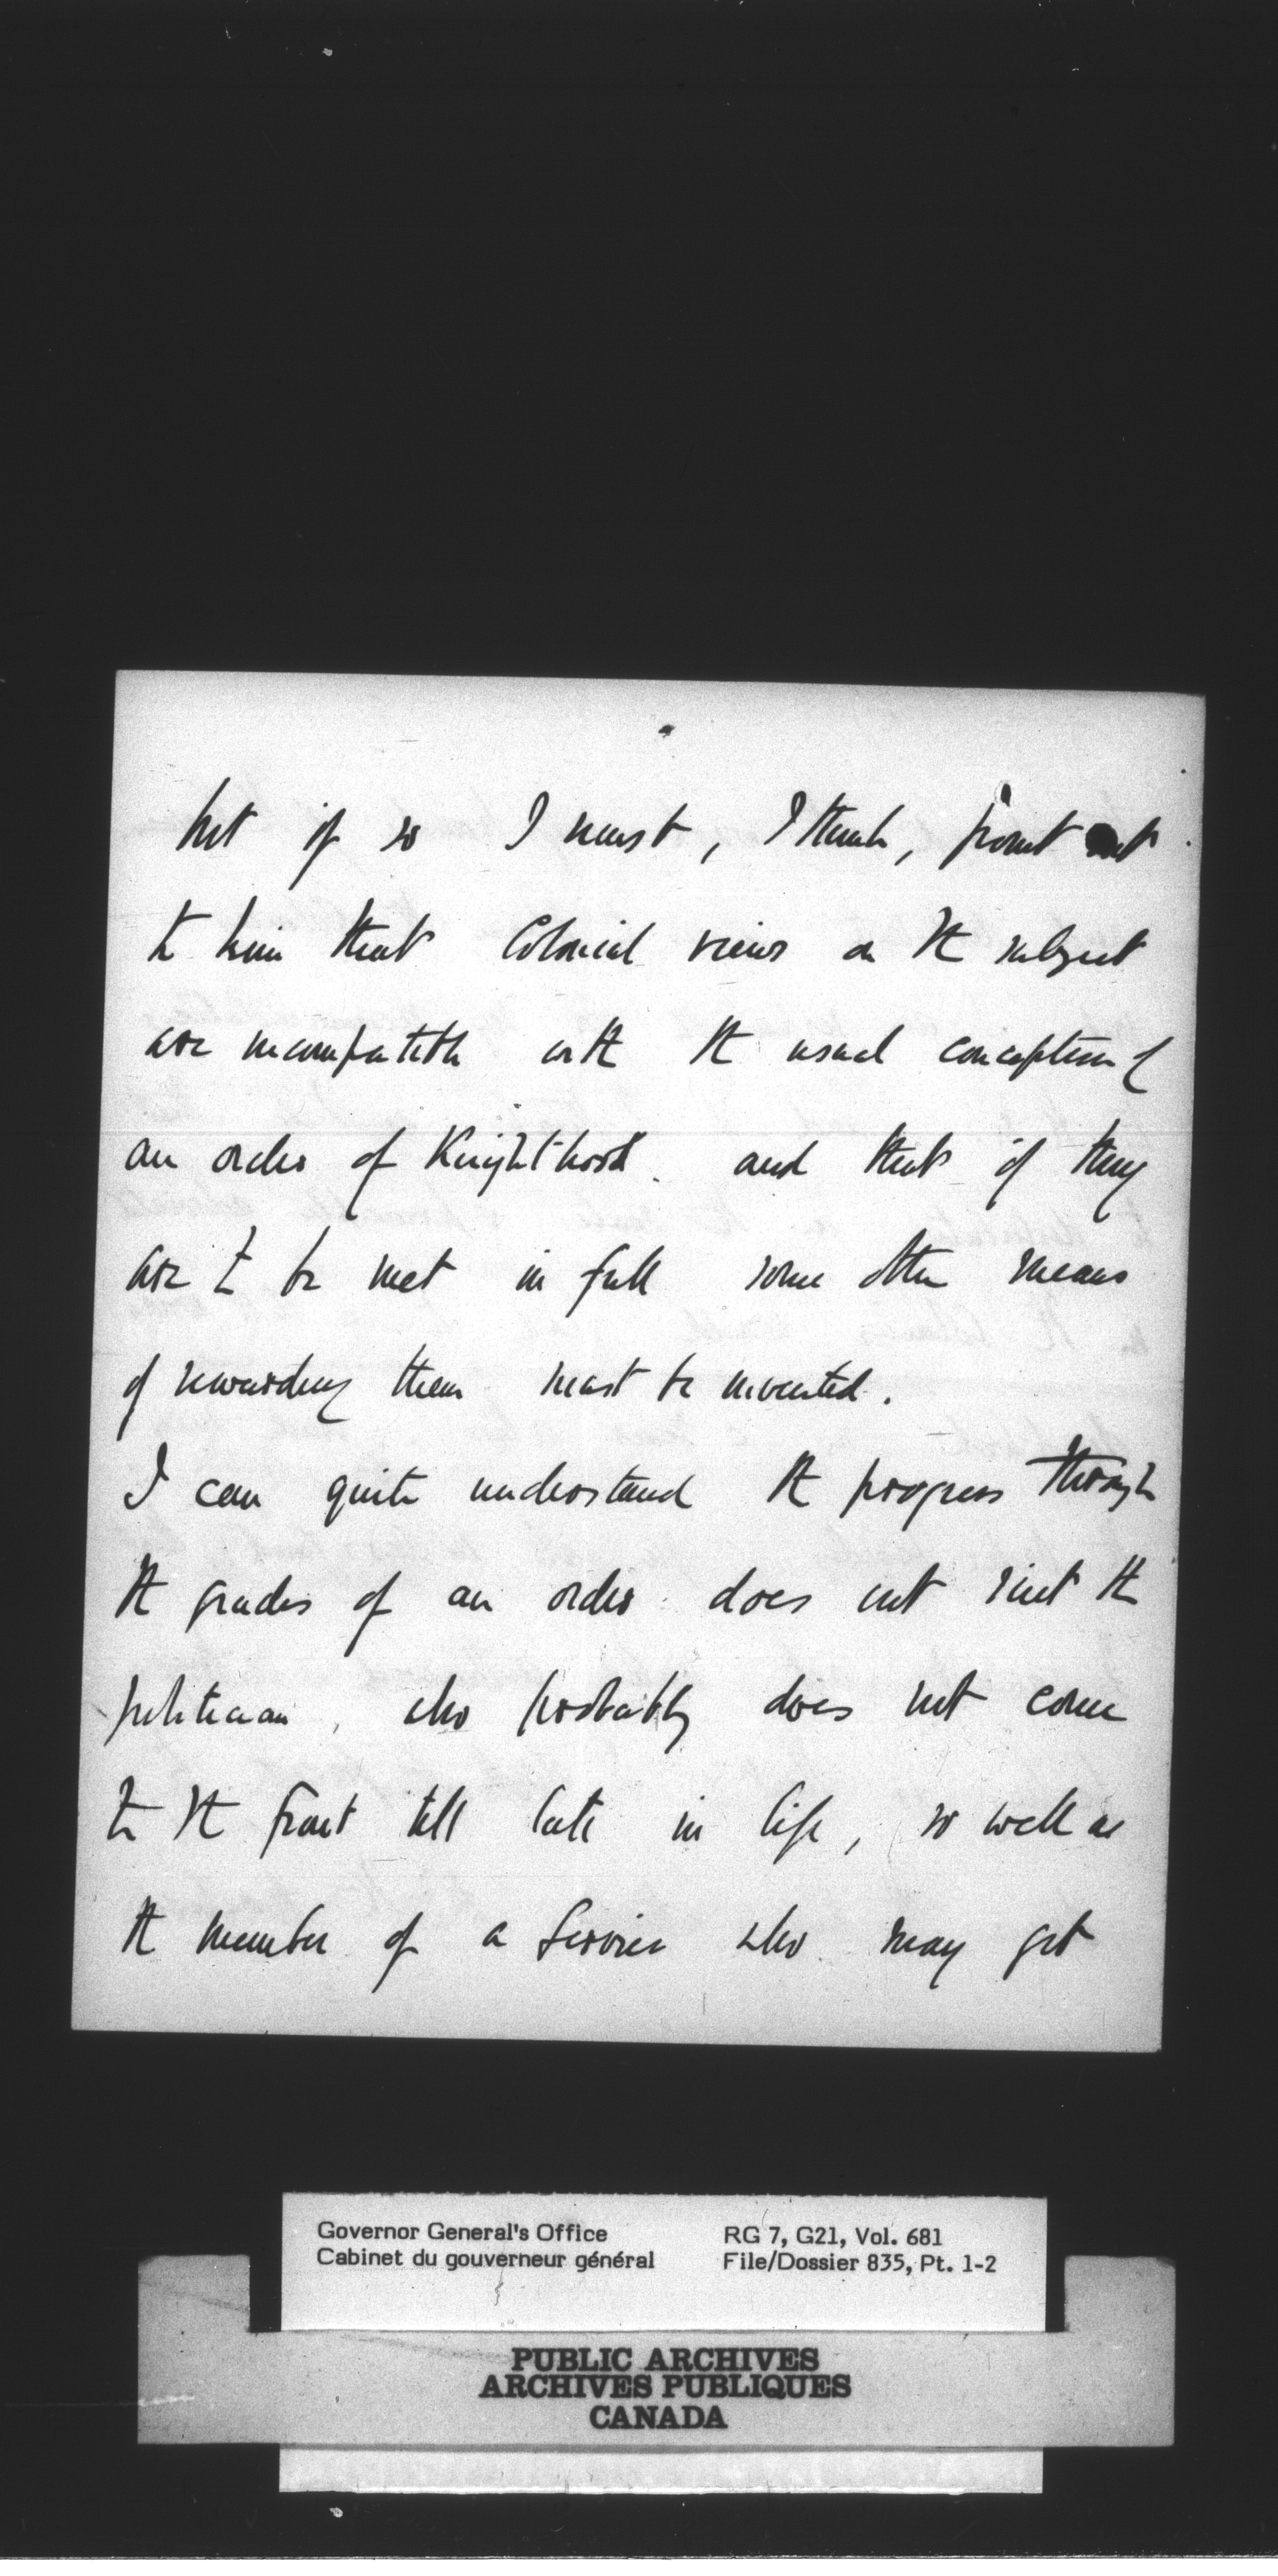 but if so I must, I think, point out
to him that Colonial views on the subject
are incompatible with the usual conception of
an order of Knighthood. and that if they
are to be met in full some other means
of rewarding them must be invented.
I can quite understand the progress through
the grades of an order does not suit the
politician, who probably does not come
to the front till late in life, so well as
the member of a Service who may get
Governor General's Office
Cabinet du gouverneur général
RG 7, G21, Vol. 681
File/Dossier 835, Pt. 1-2
PUBLIC ARCHIVES
ARCHIVES PUBLIQUES
CANADA